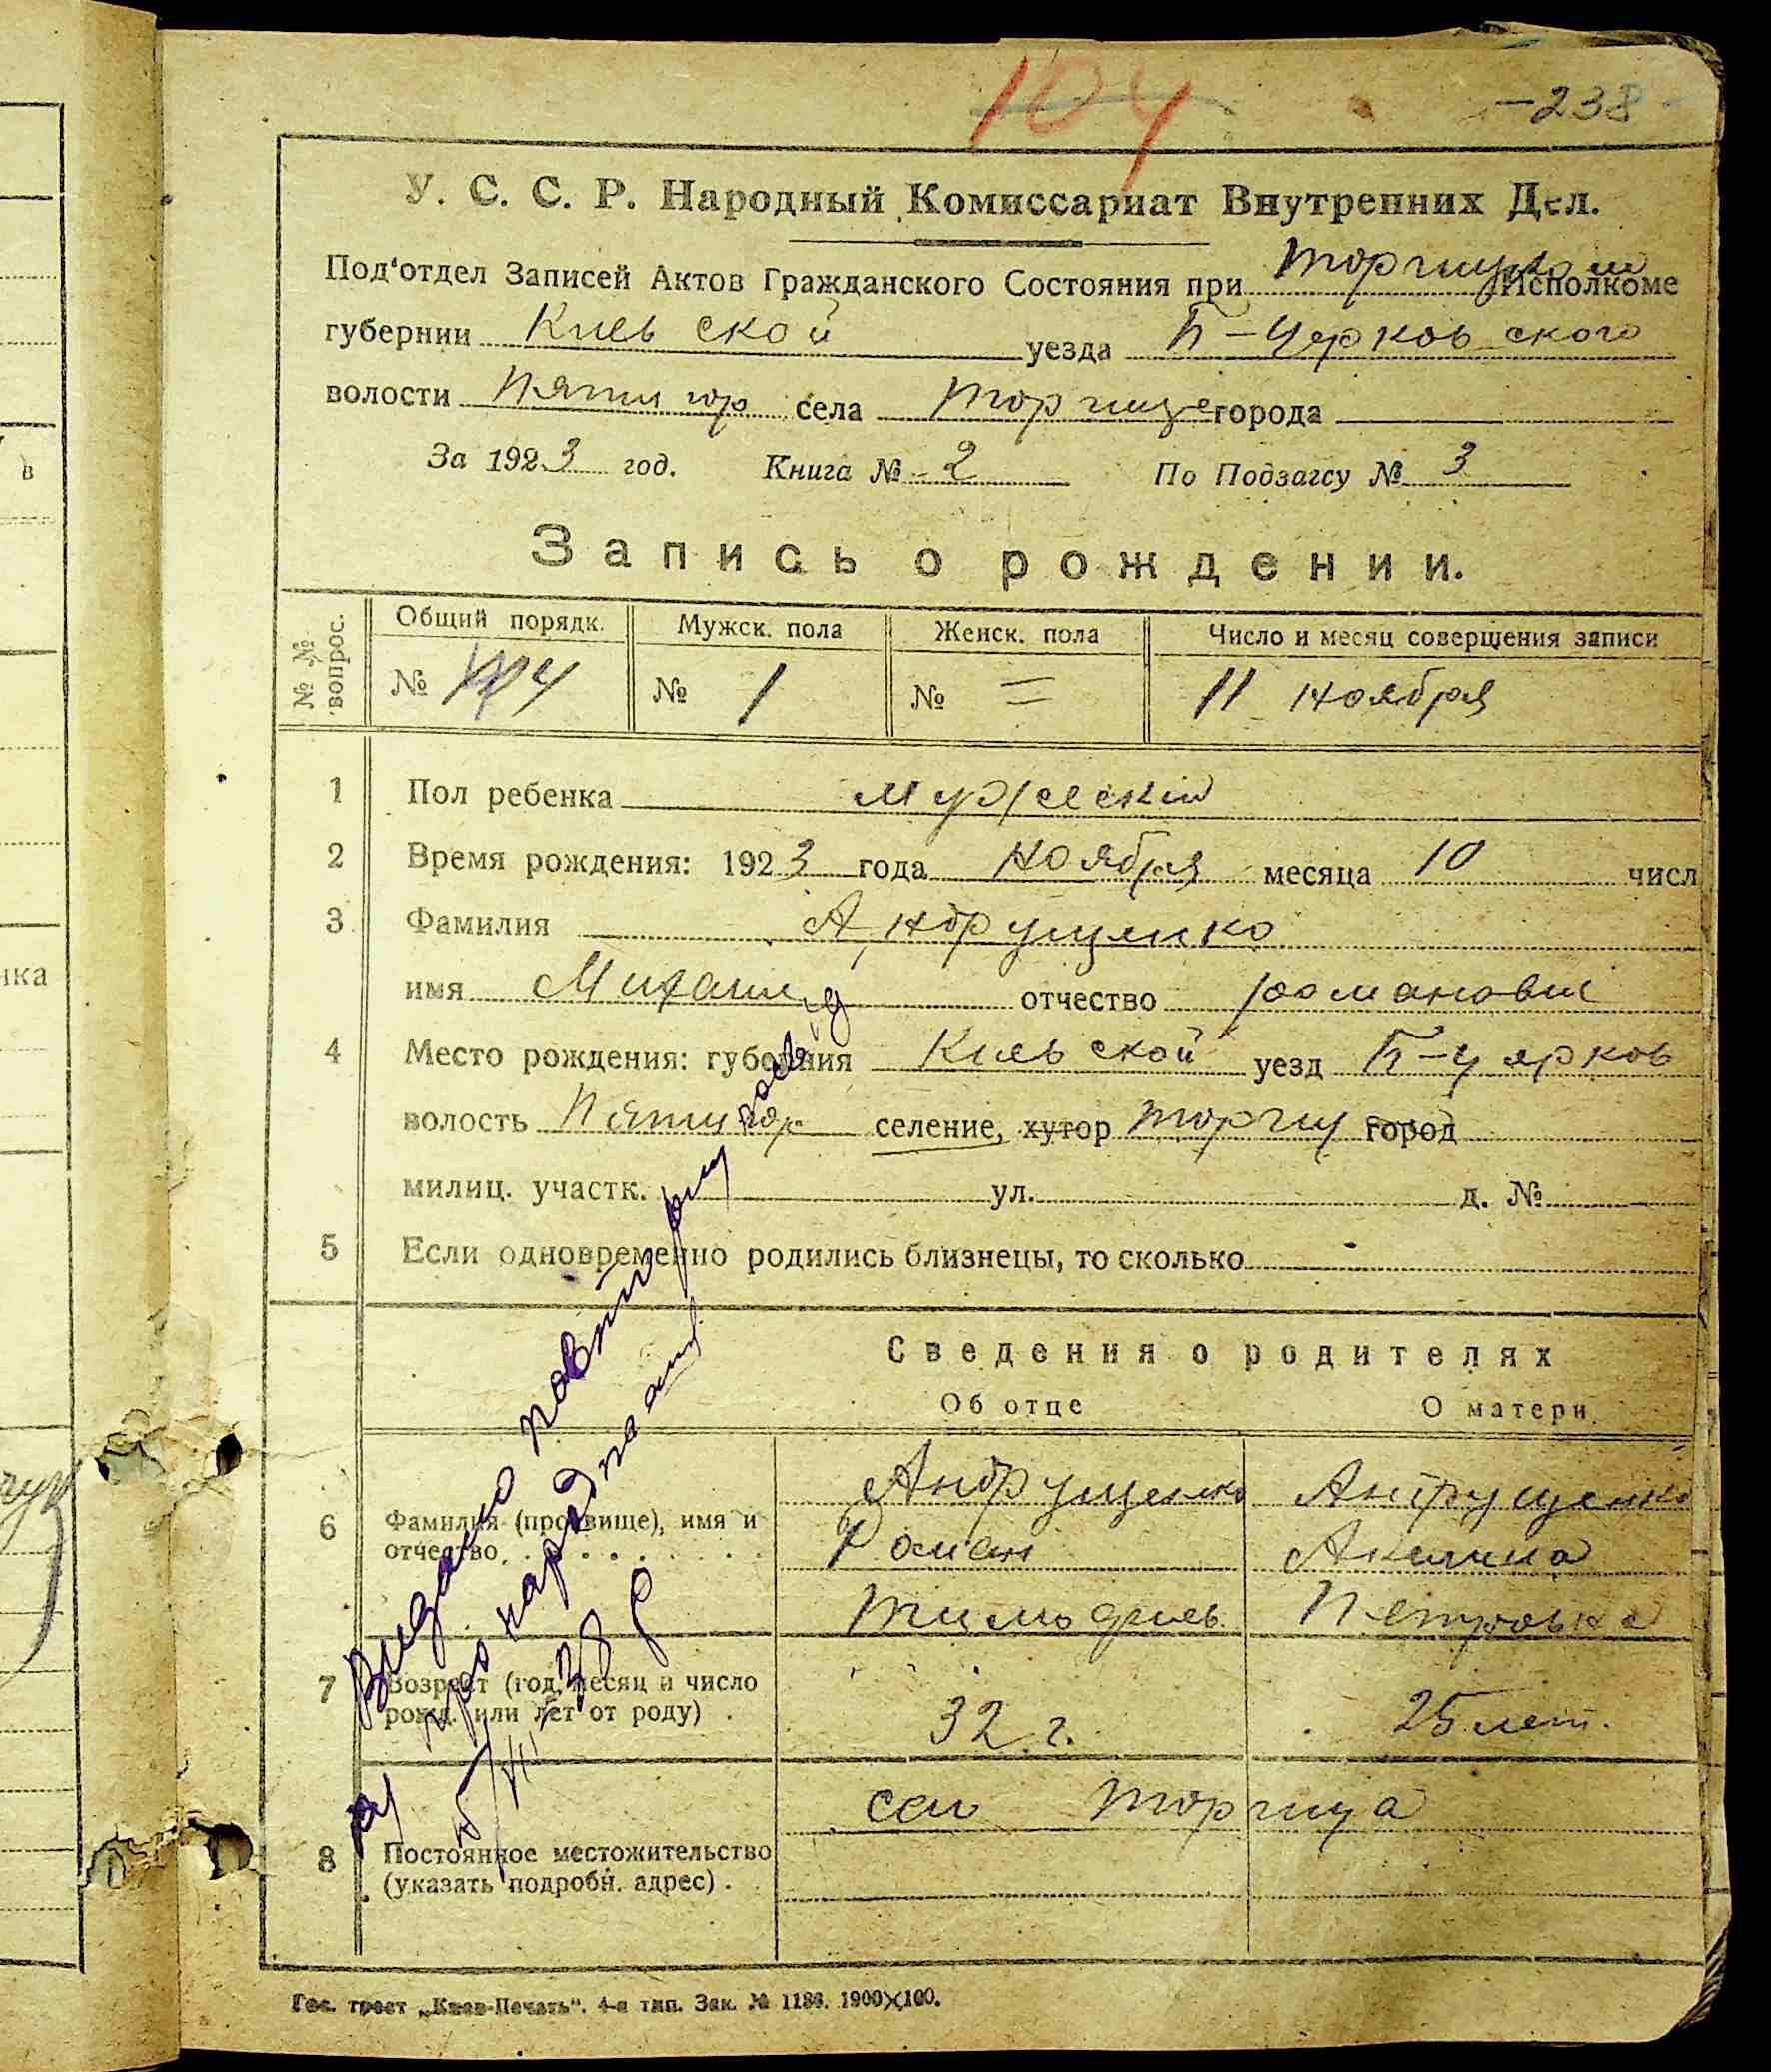 104
-238
У. С. С. Р. Народный Комиссариат Внутренних Дел.
Под'отдел Записей Актов Гражданского Состояния при Исполкоме
губернии Киевской уезда Б-Церковского
волости Пятигор села Торчице города
За 1923 год. Книга № 2 По Подзагсу № 3
Запись о рождении.
№ № вопрос.
Общий порядк. Мужск. пола Женск. пола Число и месяц совершения записи
№ № 1 № = 11 ноября
1 Пол ребенка мужескій
2 Время рождения: 1923 года ноября месяца 10 числ
3 Фамилия Андрущенко
имя Михаил отчество романович
4 Место рождения: губерния Киевской уезд Б-церков
волость Пятигор селение, хутор Торчиц город
милиц. участк. ул. д. №
5 Если одновременно родились близнецы, то сколько -
Сведения о родителях
Об отце О матери
6 Фамилия (прозвище), имя и отчество
Андрущенко Андрущенко
Роман Акилина
Тимофиев. Петровна
7 Возраст (год, месяц и число рожд. или лет от роду) .
32 г. 25 лет.
8 Постоянное местожительство (указать подробн. адрес) .
село Торчица
Видано повтірну посвід
про народ
5/VII-38 р
Гос. трест „Киев-Печать". 4-я тип. Зак. № 1186. 1900×100.